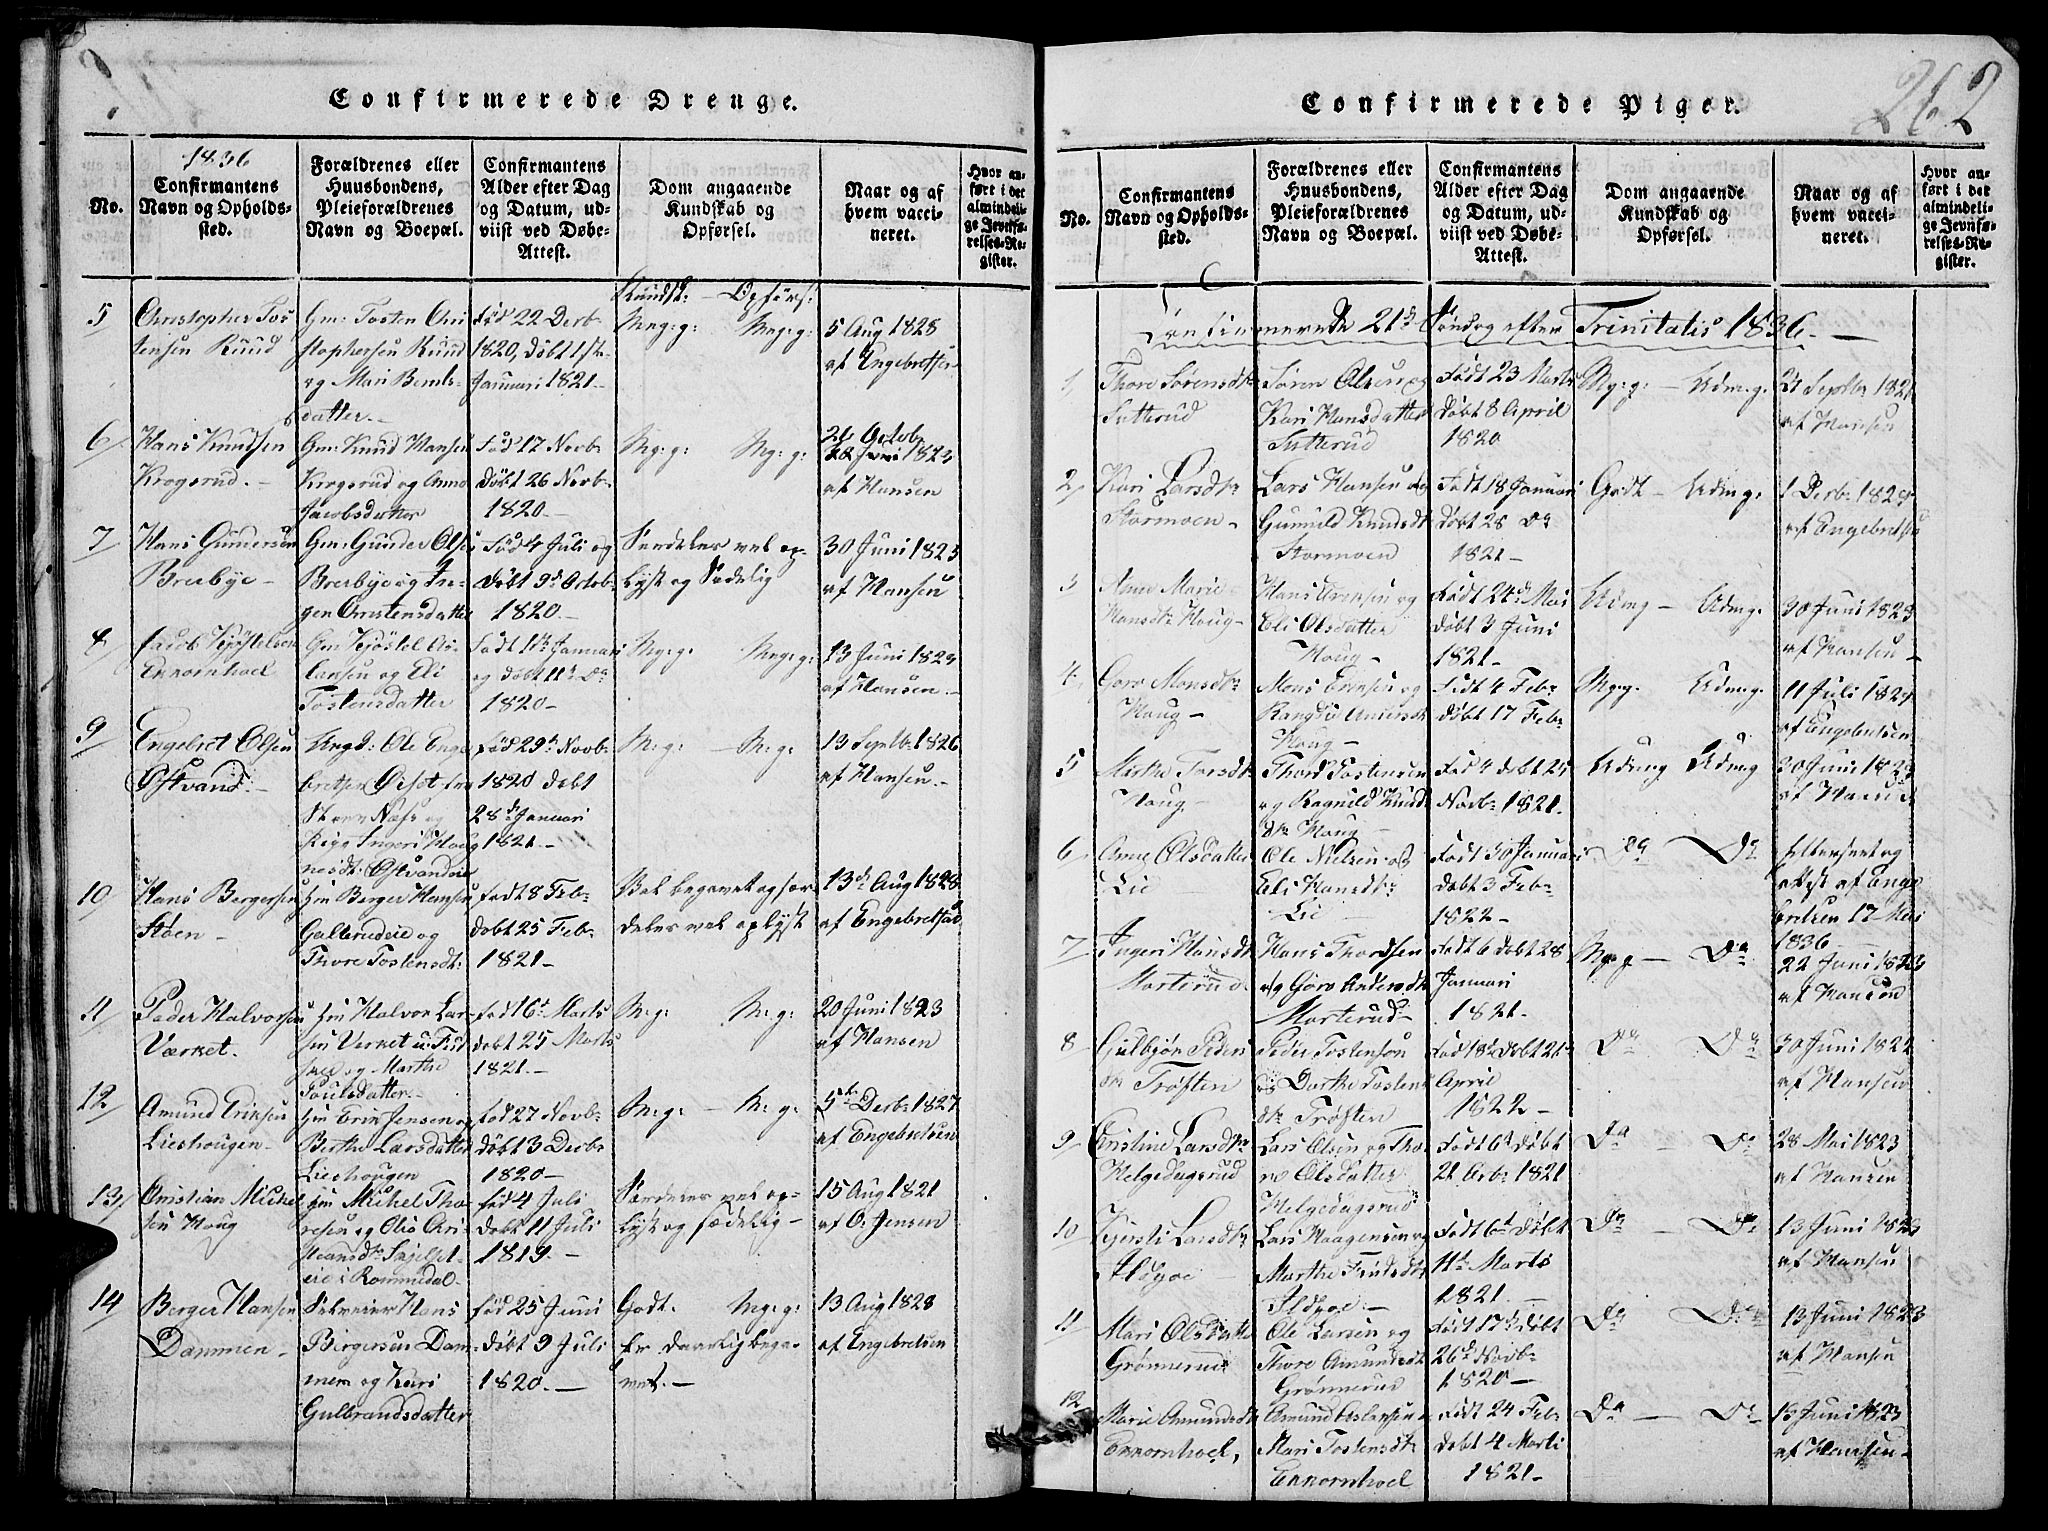 Confirmerede Drenge.
1836
No.
Confirmantens
Navn og Opholds-
sted.
Forældrenes eller
Huusbondens,
Pleieforældrenes
Navn og Boepæl.
Confirmantens
Alder efter Dag
og Datum, ud-
viist ved Døbe-
Attest.
Dom angaaende
Kundskab og
Opførsel.
Naar og af
hvem vacci-
neret.
Hvor an-
ført i det
almindeli-
ge Jevnfø-
relses-Re-
gister.
Kundsk: — Opførs:
5
Christopher Tos
tensen Ruud
Gm: Tosten Chri
stophersen Ruud
og Mari Bernts-
datter.-
Fød 22 Decbr
1820, Døbt 1ste
Januari 1821.-
Mg: g: Mg: g:
5 Aug 1828
af Engebretsen
6
Hans Knudsen
Krogsrud.-
Gm: Knud Hansen
Krogsrud og Anne
Jacobsdatter
Fød 17 Novbr
Døbt 26 Novbr
1820.-
Mg: g: Mg: g:
21 Octob
1823
af Hansen
7
Hans Gundersen
Brerbye-
Gm: Gunder Olsen
Brerbye og In-
gen Christensdatter
Fød 4 Juli og
Døbt 9d Octob
1820.-
Særdeles vel op-
lyst og Sædelig
30 Juni 1823
af Hansen
8
Jacob Kjøstelsen
Ennornhoel
Gm Kjøstel As-
lansen og Eli
Tostensdatter
Født 1te Januari
og døbt 11te Do
1820-
Mg: g: Mg: g:
13 Juni 1823
af Hansen.-
9
Engebret Olsen
Østvand.-
Ungd: Ole Enge
bretsen
Næss og
Pige Ingeri Hong
nesdt: Østvandeie
Fød 29de Novbr
1820 døbt
28de Januari
1821.-
M: g: — M: g:
13 Septbr 1826
af Hansen.-
10
Hans Bergersen
Støen-
Hm Berger Hansen
Galbrudeie og
Thore Tostensdt:
Født 8 Febr
døbt 25 Febr
1821-
Vel begavet og sær
deles vel oplyst
13de Aug 1828
af Engebretsen
11
Peder Halvorsen
Værket.
Hm Halvor Lar-
sen Verket
og Marthe
Poulsdatter.-
Fød 16de Marts
døbt 25 Marts
1821.-
M: g: M: g:
20 Juni 1823
af Hansen
12
Amund Eriksen
Lieshougen-
Hm Erik Jensen og
Berthe Larsdatter
Lieshougen
Fød 27 Novbr
Døbt 3 Decbr
1820-
M: g: — M: g:
5te Decbr 1827
af Engebretsen
13
Christian Michel
sen Houg
Hm Michel Tho-
resen og Olia Chri
Skjelset-
eie i Rommedal-
Fød 4 Juli
Døbt 11 Juli
1819.-
Særdeles vel op-
lyst og sædelig-
15 Aug 1821
af O. Jensen
14
Berger Hansen
Dammen-
Selveier Hans
Bergersen Dam-
men og Kari
Gulbrandsdatter
Fød 25 Juni
Døbt 9 Juli
1820.-
Godt. Mg: g:
Er daarlig bega-
vet.-
13 Aug 1828
af Engebretsen
Confirmerede Piger.
262
No.
Confirmantens
Navn og Opholds-
sted.
Forældrenes eller
Huusbondens,
Pleieforældrenes
Navn og Boepæl.
Confirmantens
Alder efter Dag
og Datum, ud-
viist ved Døbe-
Attest.
Dom angaaende
Kundskab og
Opførsel.
Naar og af
hvem vacci-
neret.
Hvor an-
ført i det
almindeli-
ge Jevnfø-
relses-Re-
gister.
Confirmerede 21de Søndag efter Trinitatis 1836.-
1
Thore Sørensdtr
Sutterud
Søren Olsen og
Kari Hansdatter
Sutterud
Født 23 Marts
Døbt 8 April
1820
Mg: g: — Udm. g.
af Hansen
2
Kari Larsdtr
Stormoen-
Lars Hansen og
Gunnild Knudsdt
Stormoen
Født 18 Januari
Døbt 28 Do
1821-
Godt — Udm g.
af Engebretsen
3
Anne Marie
Hansdtr Houg-
Hans Evensen og
Eli Olsdatter
Houg-
Født 24de Mai
Døbt 3 Juni
1821-
Udm g — Udm g.
30 Juni 1823
af Hansen-
4
Goro Monsdtr
Houg-
Mons Evensen og
Rangdi Andersdt
Houg-
Født 4 Febr
Døbt 17 Febr
Mg: g. Udm g.
af Engebretsen
5
Marthe Torsdtr
Houg-
Thord Tostensen
og Ragnild Knud
dtr Houg-
Fød 4 døbt 25
Novbr 1821.
Udm g Udm g
30 Juni 1823
af Hansen
6
Anne Olsdatter
Lie
Ole Nielsen og
Eli Hansdtr
Lie
Født 30 Januari
Døbt 3 Febr
1822-
Do Do
Efterseet og
attest af Enge
bretsen 17 Mai
1836
7
Ingeri Hansdt
Morterud.
Hans Thordsen
og Goro Andersdtr
Morterud-
Født 6 døbt 28
Januari
1821.
Mg: g — Do
22 Juni 1823
af Hansen
8
Gulbjør Peders
dtr Trøften
Peder Tostensen
og Dorthe Tostens
dtr Trøften
Fød 18de Døbt 21de
April
1822-
Do Do
30 Juni 1822
af Hansen
9
Cristine Larsdtr
Helgedagsrud
Lars Olsen og Tho
re Olsdatter
Helgedagsrud
Født 6te døbt
21 Octbr 1821
Do Do
28 Mai 1823
af Hansen
10
Kjersti Larsdtr
Ildgoe-
Lars Haagensen og
Marthe
Ildgoe.-
Født 6te Døbt
11te Marts
1821.-
Do Do
13 Juni 1823
af Hansen
11
Mari Olsdatter
Grønnerud
Ole Larsen og
Thore Amundsdtr
Grønnerud
Født 17de døbt
26de Novbr
1820-
Do Do
13 Juni 1823
af Hansen
12
Marie Amundsdt
Ennornhoel,
Amund Aslansen
Mari Tostensdtr
Ennornhoel
Født 24 Febr
døbt 4 Marti
1821-
Do — Do
13 Juni 1823
af Hansen-